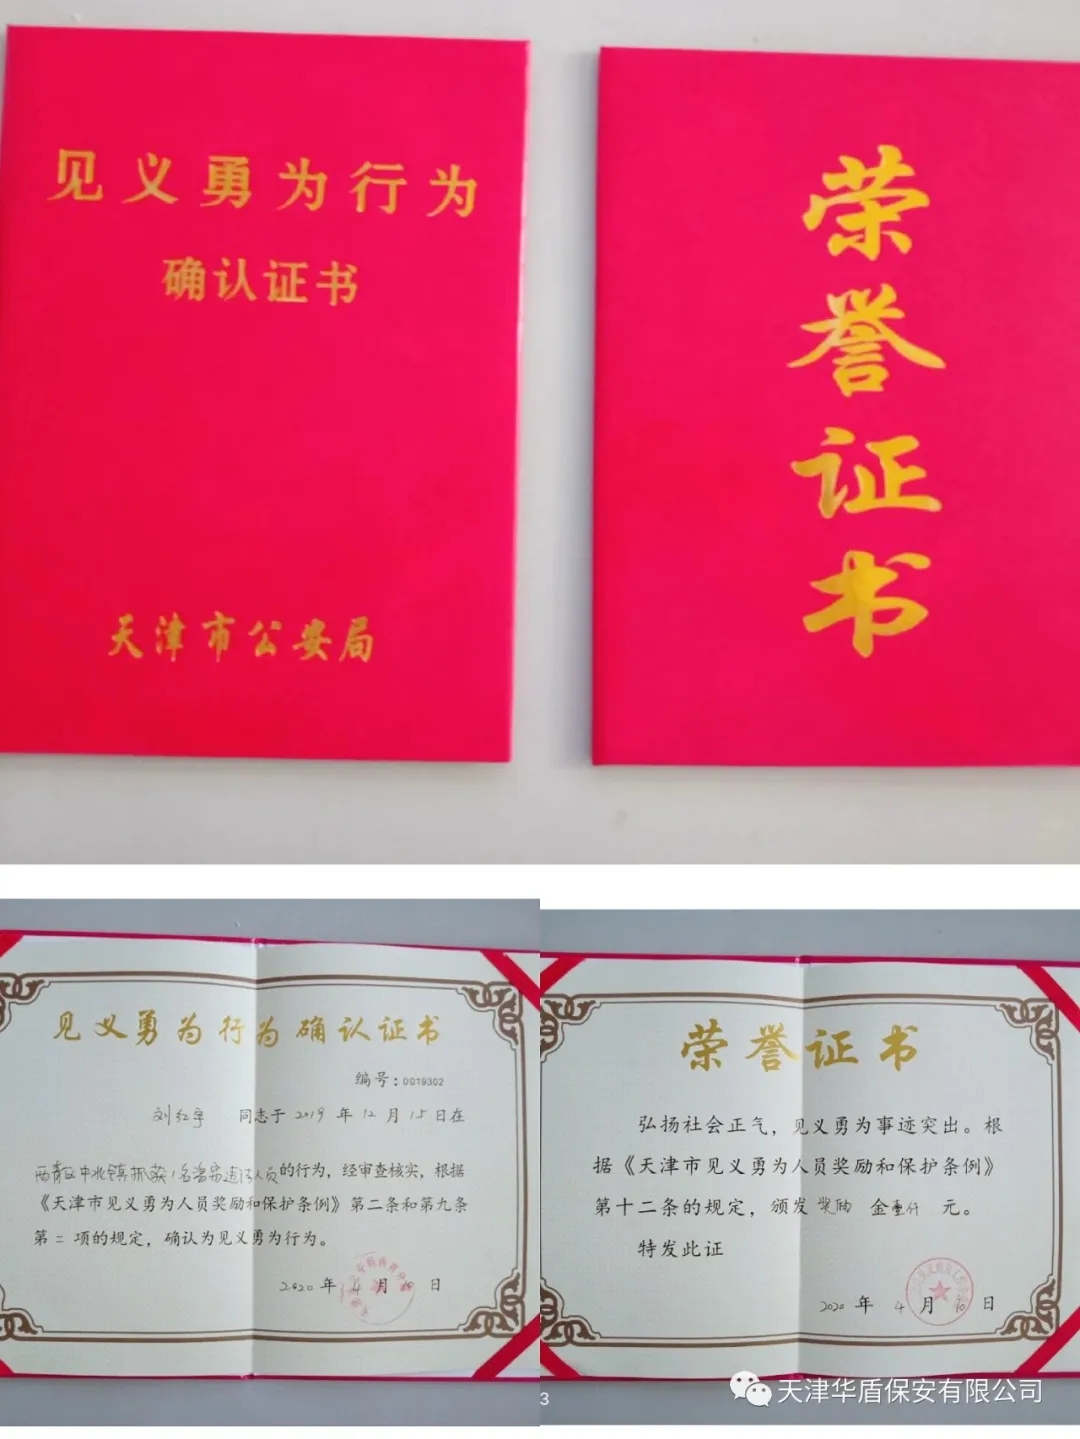 见义勇为行为
确认证书
天津市公安局
荣
誉
证
书
见义勇为行为确认证书
编号：0019302
刘红宇 同志于 2019 年 12 月 15 日在
西青区中北镇抓获1名盗窃违法人员的行为，经审查核实，根据
《天津市见义勇为人员奖励和保护条例》第二条和第九条
第 二 项的规定，确认为见义勇为行为。
2020 年 4 月 10 日
荣誉证书
弘扬社会正气，见义勇为事迹突出。根
据《天津市见义勇为人员奖励和保护条例》
第十二条的规定，颁发 奖励 金壹仟 元。
特发此证
2020 年 4 月 10 日
3
天津华盾保安有限公司